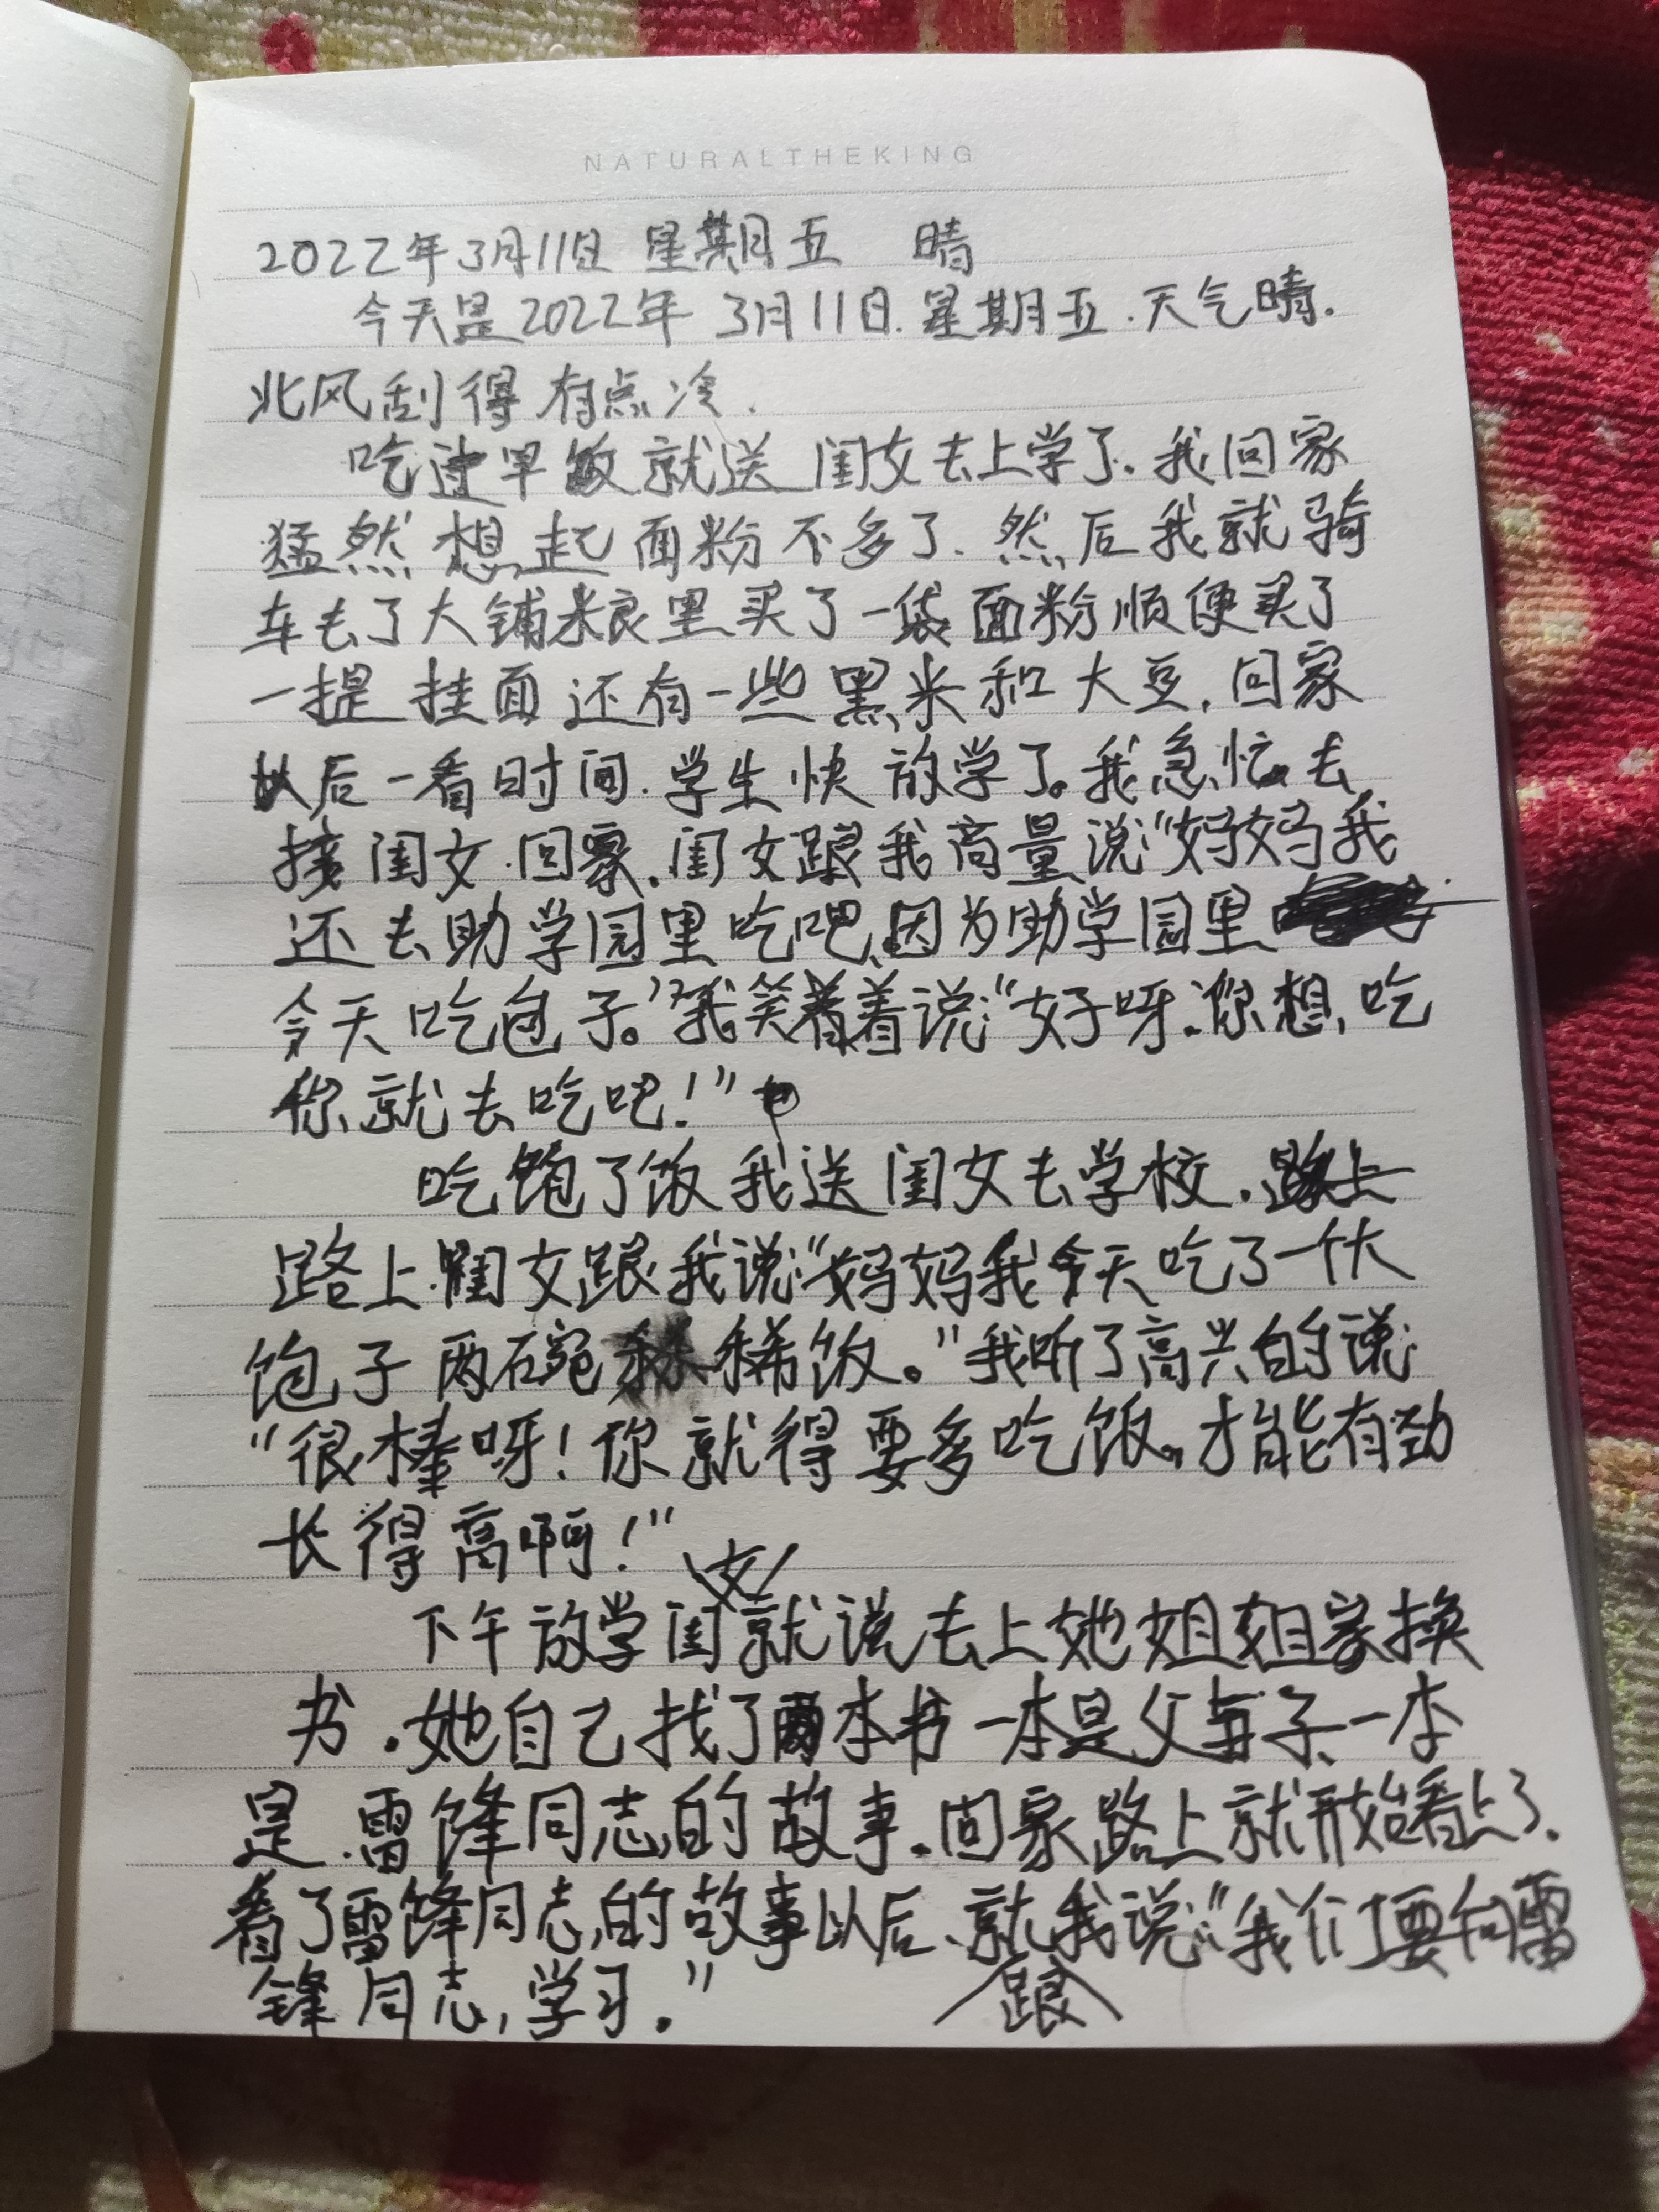 NATURALTHEKING
2022年3月11日 星期五 晴
今天是2022年 3月11日.星期五.天气晴.
北风刮得有点冷.
吃过早饭就送闺女去上学了.我回家
猛然想起面粉不多了.然后我就骑
车去了大铺粮里买了一袋面粉顺便买了
一提挂面还有一些黑米和大豆.回家
以后一看时间.学生快放学了。我急忙去
接闺女.回家.闺女跟我商量说:“妈妈我
还去助学园里吃吧.因为助学园里
今天吃包子。”我笑着着说:“好呀.你想吃
你就去吃吧!”
吃饱了饭我送闺女去学校.路上
路上.闺女跟我说:“妈妈我今天吃了一个大
饱子两碗稀饭。”我听了高兴的说:
“很棒呀!你就得要多吃饭,才能有劲
长得高啊!”
下午放学闺女就说去上她姐姐家换
书.她自己找了两本书一本是父与子.一本
是.雷锋同志的故事.回家路上就开始看上了.
看了雷锋同志的故事以后、就跟我说:“我们要向雷
锋同志,学习.”